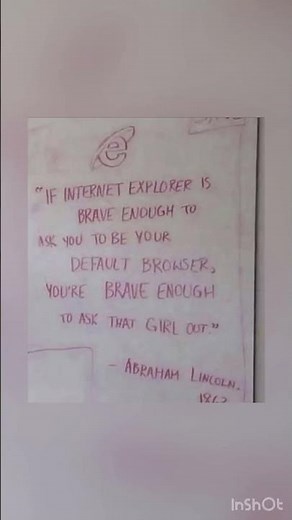 "IF INTERNET EXPLORER IS
BRAVE ENOUGH TO
ASK YOU TO BE YOUR
DEFAULT BROWSER,
YOU'RE BRAVE ENOUGH
TO ASK THAT GIRL OUT."
- ABRAHAM LINCOLN,
InShOt